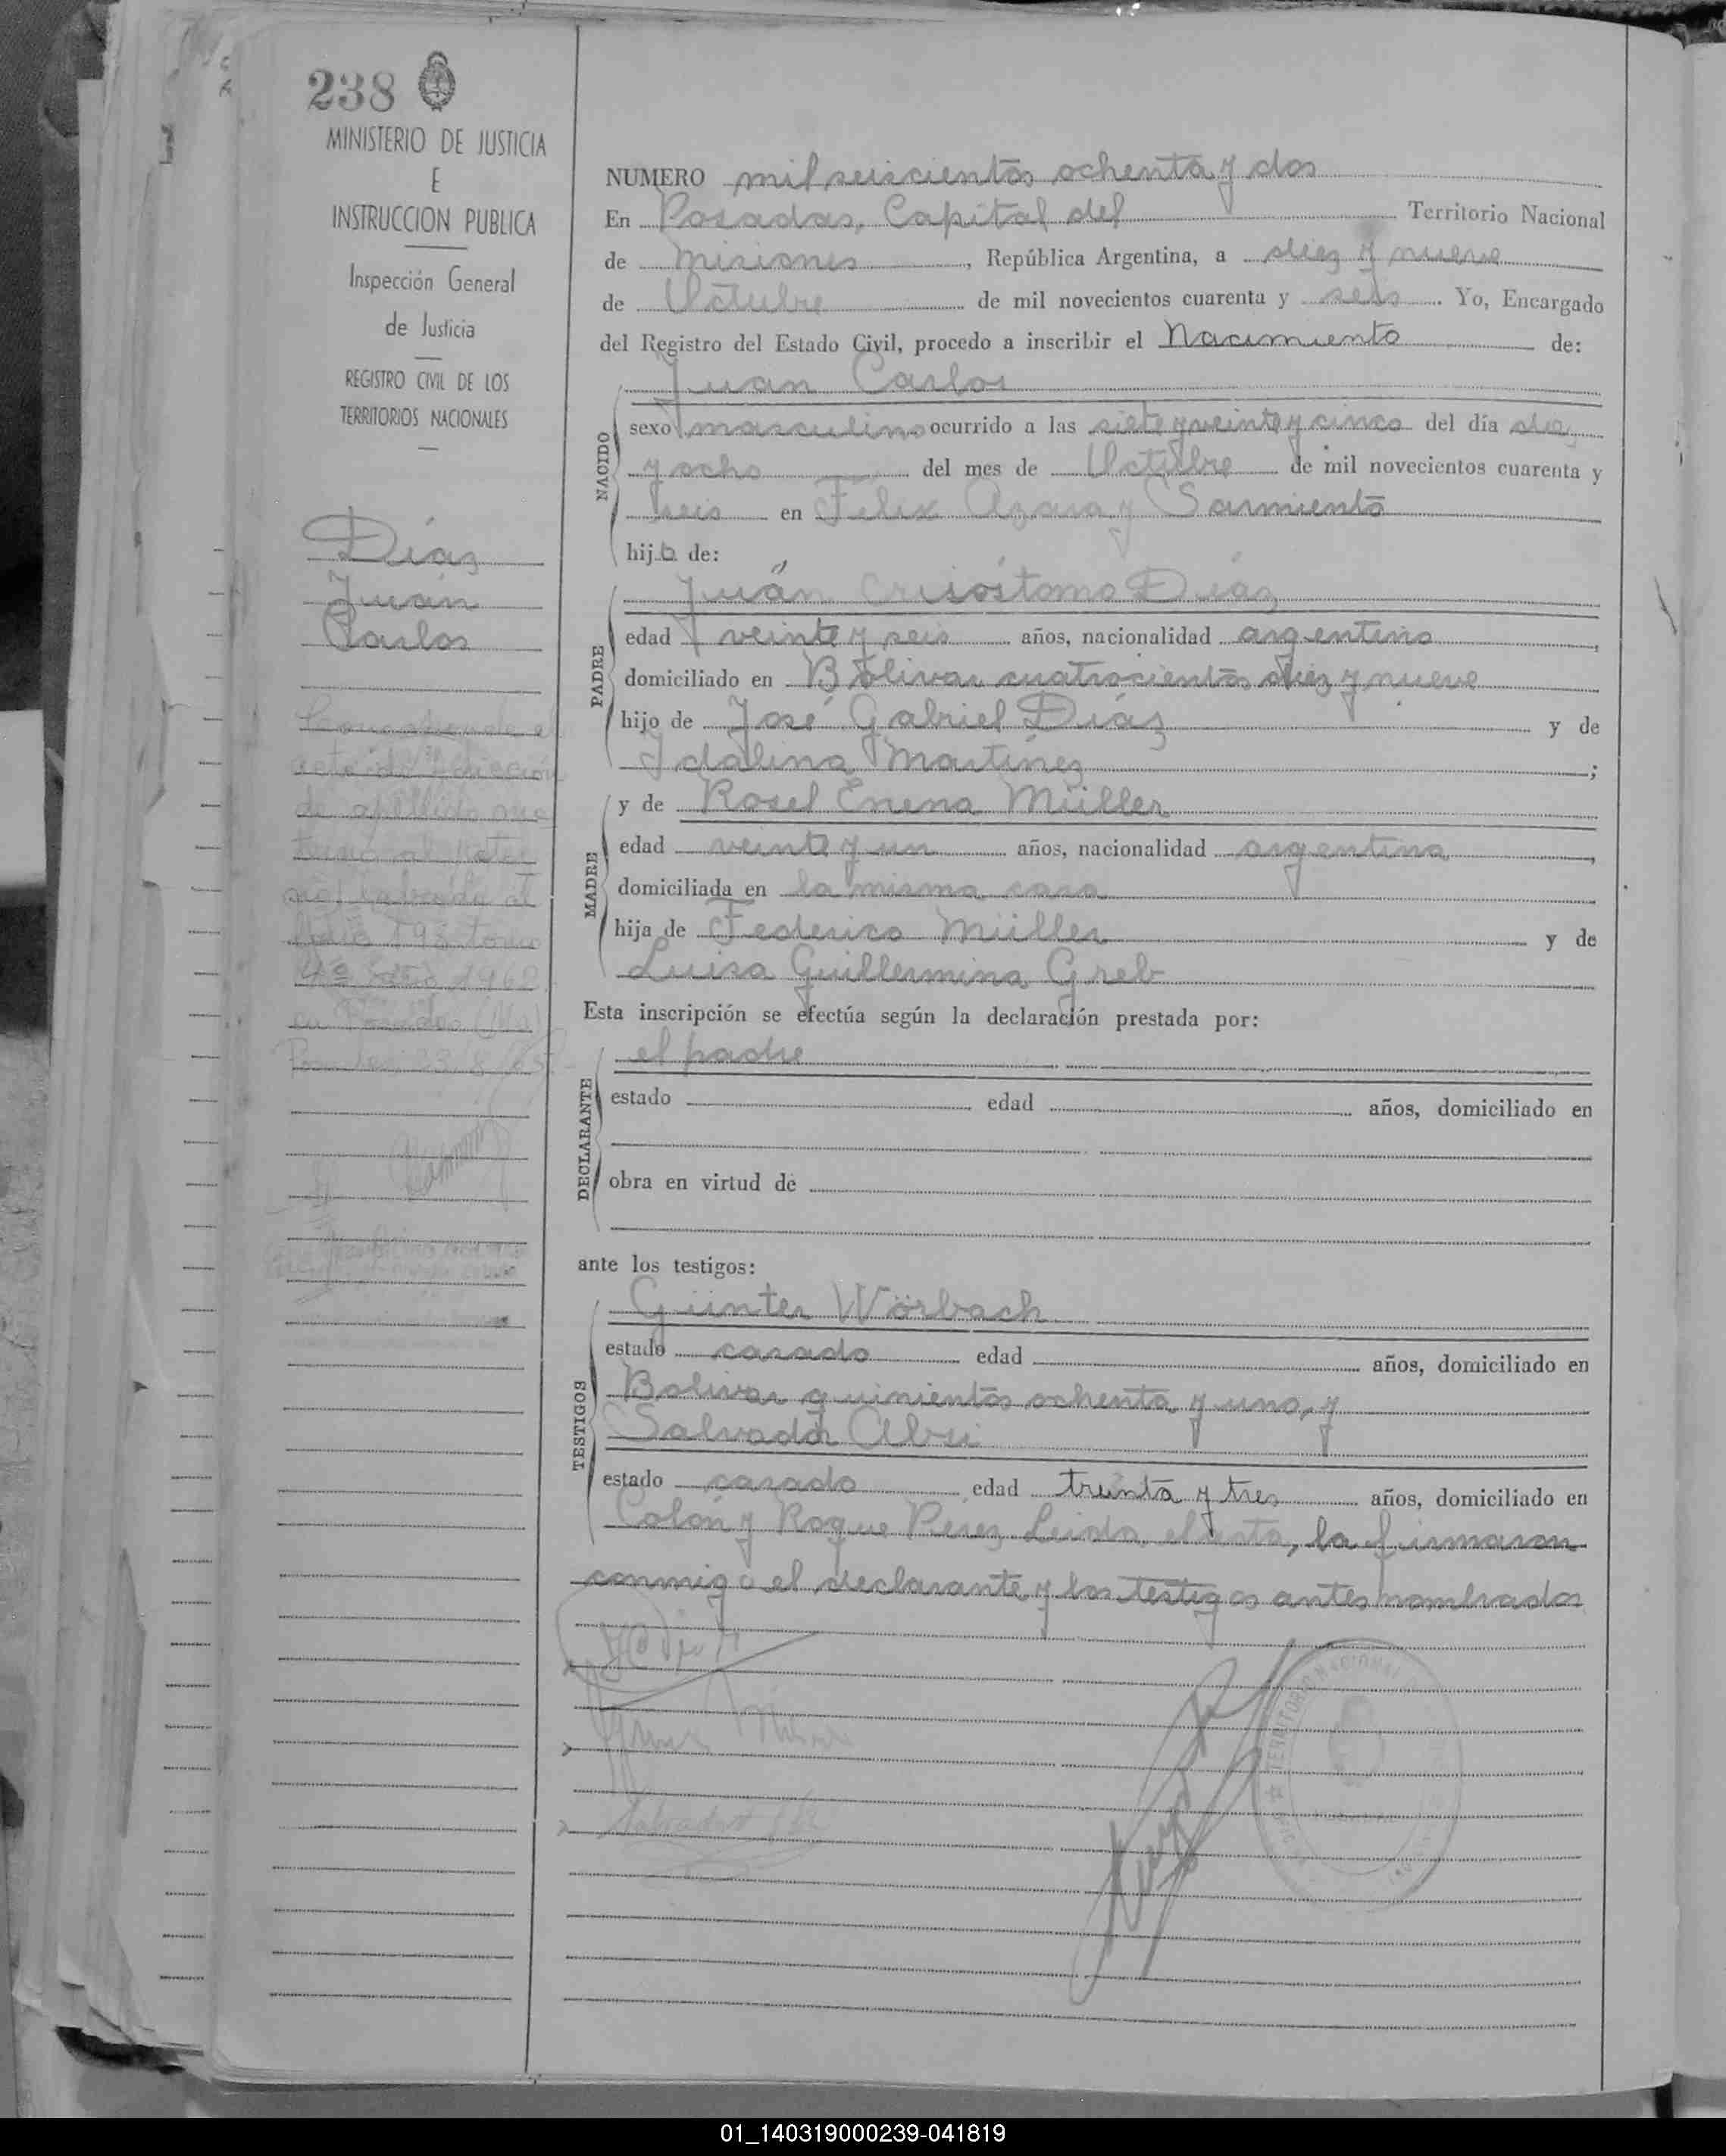 238
MINISTERIO DE JUSTICIA
E
INSTRUCCION PUBLICA
Inspección General
de Justicia
REGISTRO CIVIL DE LOS
TERRITORIOS NACIONALES
Díaz
Juan
Carlos
acta de adición
de apellido ma
terno al
labrada al
folio 193 tomo
4º año 1962
en Posadas (Ms)
Posadas 23/8/65
NUMERO mil seiscientos ochenta y dos
En Posadas, Capital del Territorio Nacional
de Misiones, República Argentina, a diez y nueve
de Octubre de mil novecientos cuarenta y seis. Yo, Encargado
del Registro del Estado Civil, procedo a inscribir el Nacimiento de:
Juan Carlos
NACIDO
sexo masculino ocurrido a las siete y veinte y cinco del día diez
y ocho del mes de Octubre de mil novecientos cuarenta y
seis en Felix Azara y Sarmiento
hijo de:
PADRE
Juán Crisóstomo Díaz
edad veinte y seis años, nacionalidad argentino,
domiciliado en Bolivar cuatrocientos diez y nueve
hijo de José Gabriel Díaz y de
Idalina Martínez;
MADRE
y de Rosel Enena Müller
edad veinte y un años, nacionalidad argentina,
domiciliada en la misma casa
hija de Federico Müller y de
Luisa Guillermina Greb
Esta inscripción se efectúa según la declaración prestada por:
DECLARANTE
el padre
estado edad años, domiciliado en
obra en virtud de
ante los testigos:
TESTIGOS
Günter Wörbach
estado casado edad años, domiciliado en
Bolivar quinientos ochenta y uno, y
Salvador Abri
estado casado edad treinta y tres años, domiciliado en
Colón y Roque Pérez. Leida el acta, la firmaron
conmigo el declarante y los testigos antes nombrados
TERRITORIO NACIONAL
01_140319000239-041819